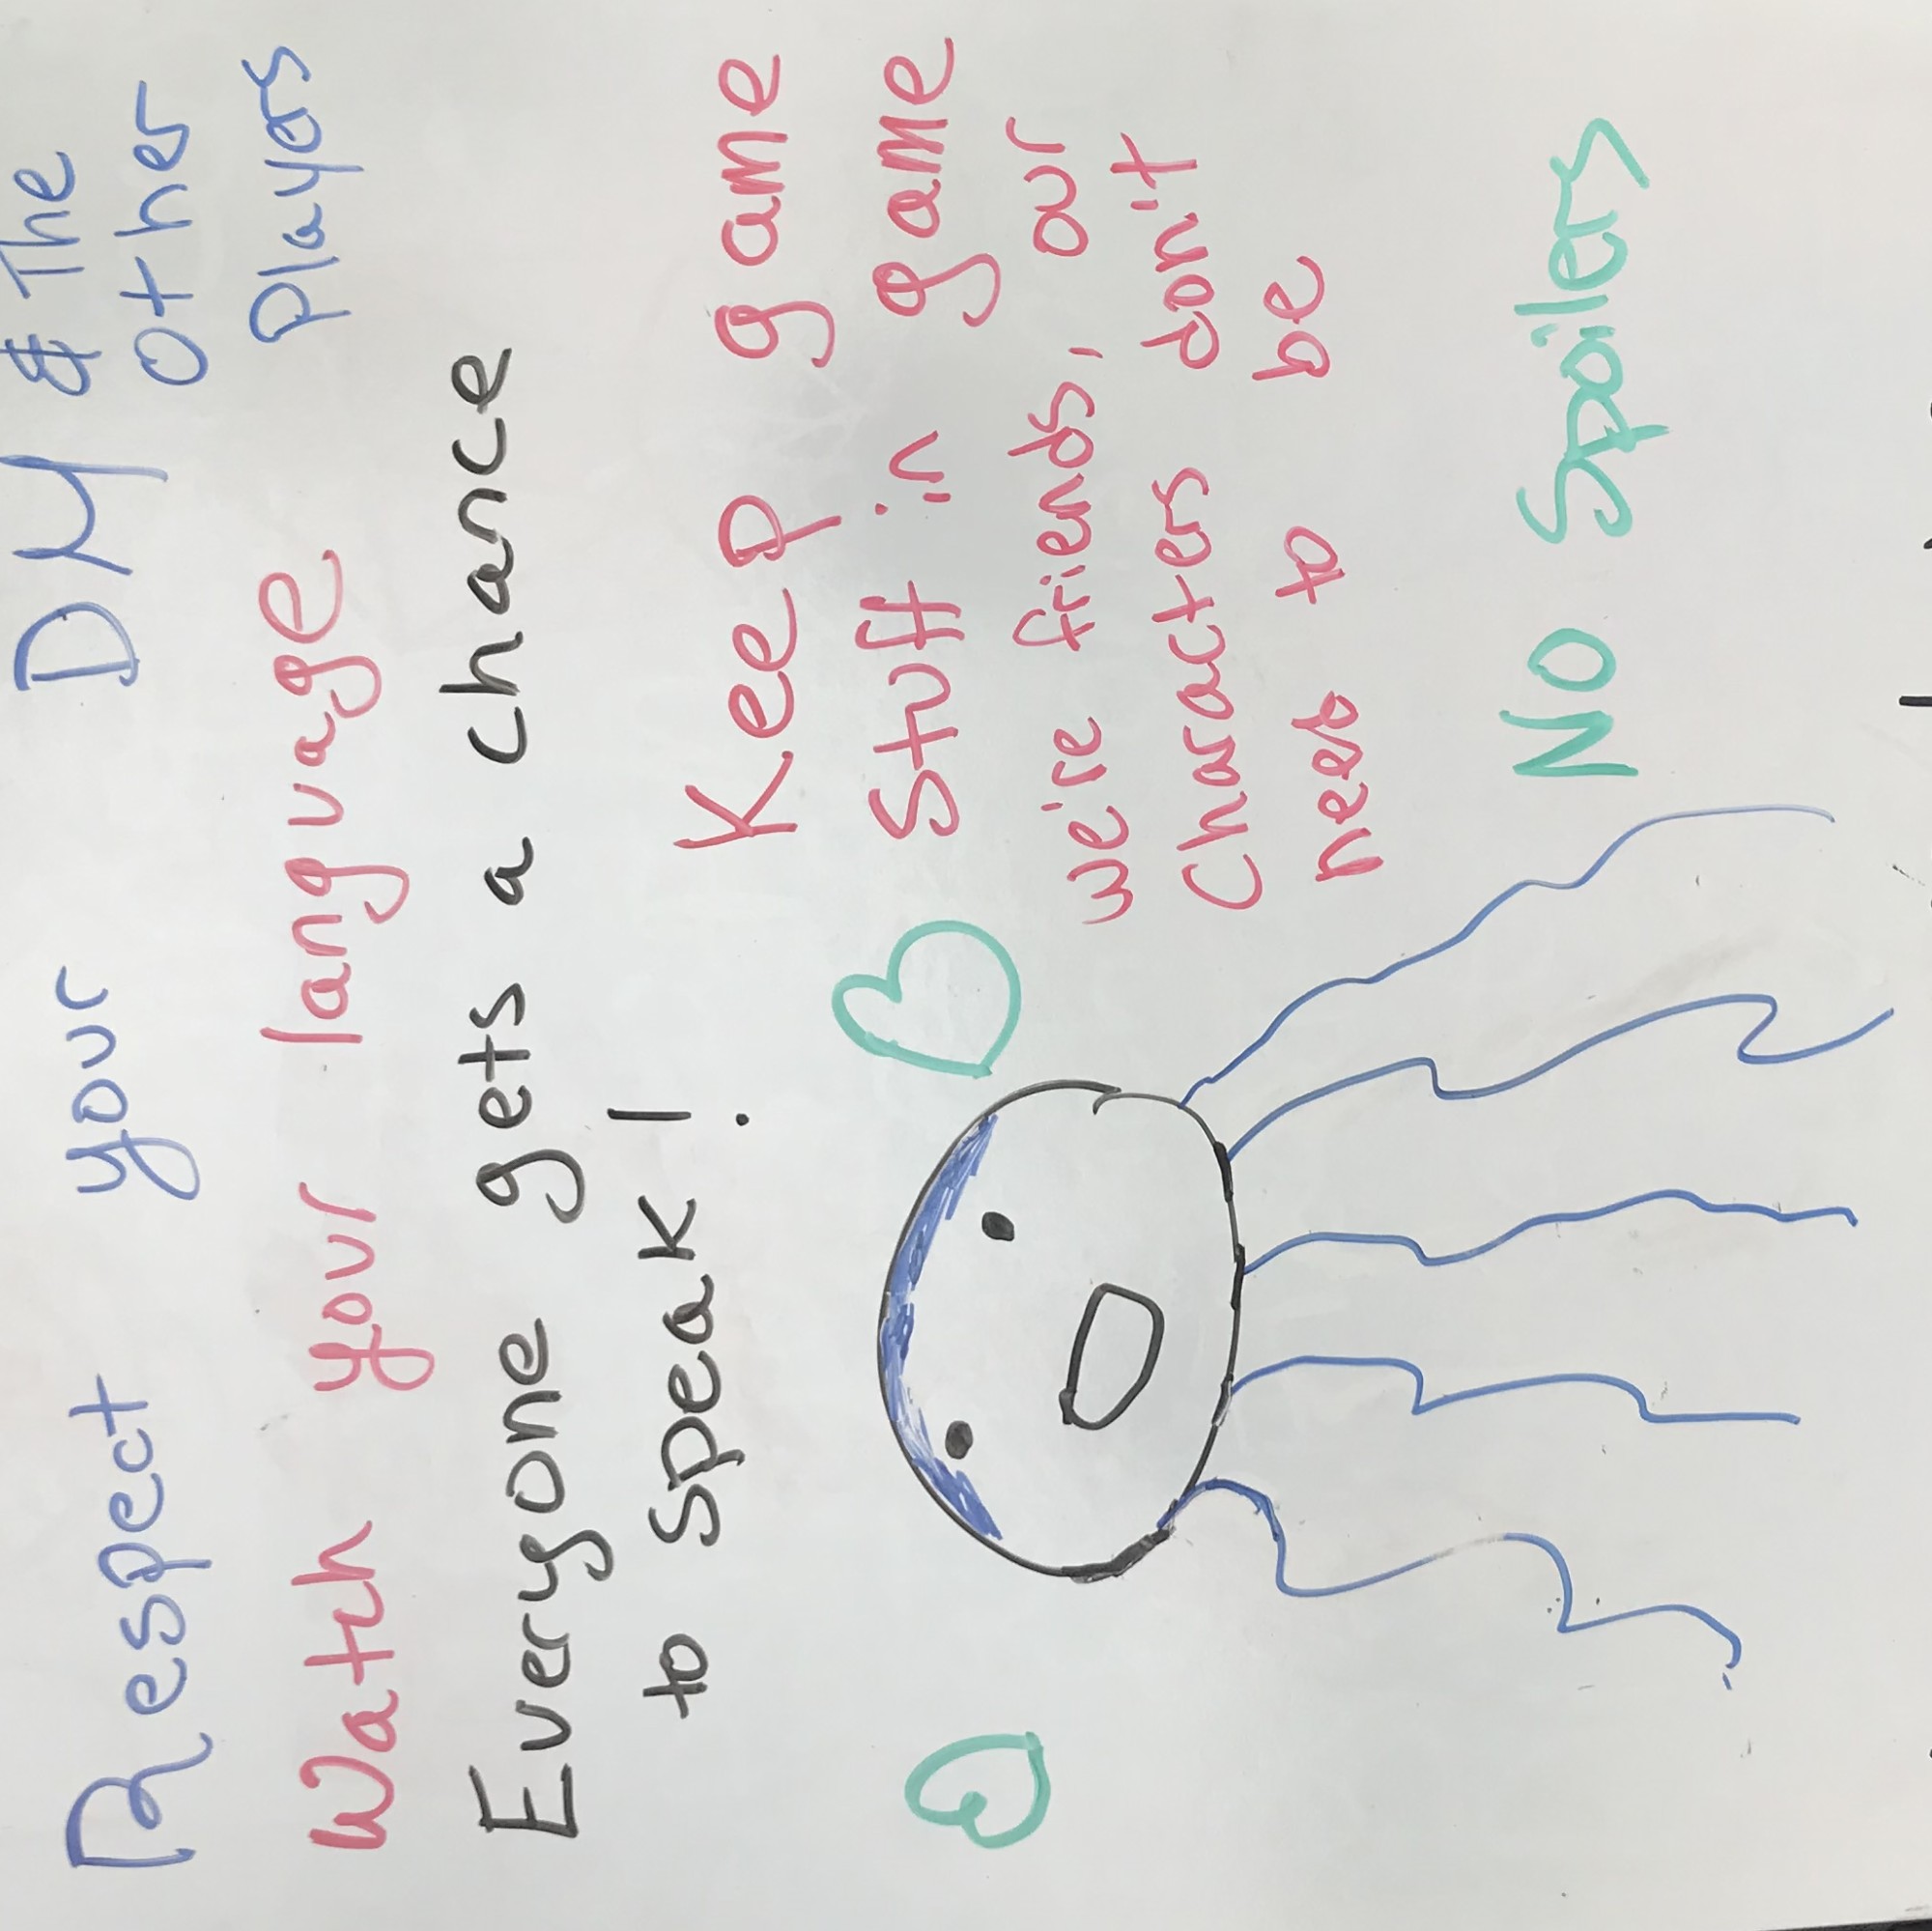 Respect your DM & The
other
Players
Watch your language
Everyone gets a chance
to speak!
Keep game
Stuff in game
we're friends, our
Characters don't
need to be
No Spoilers